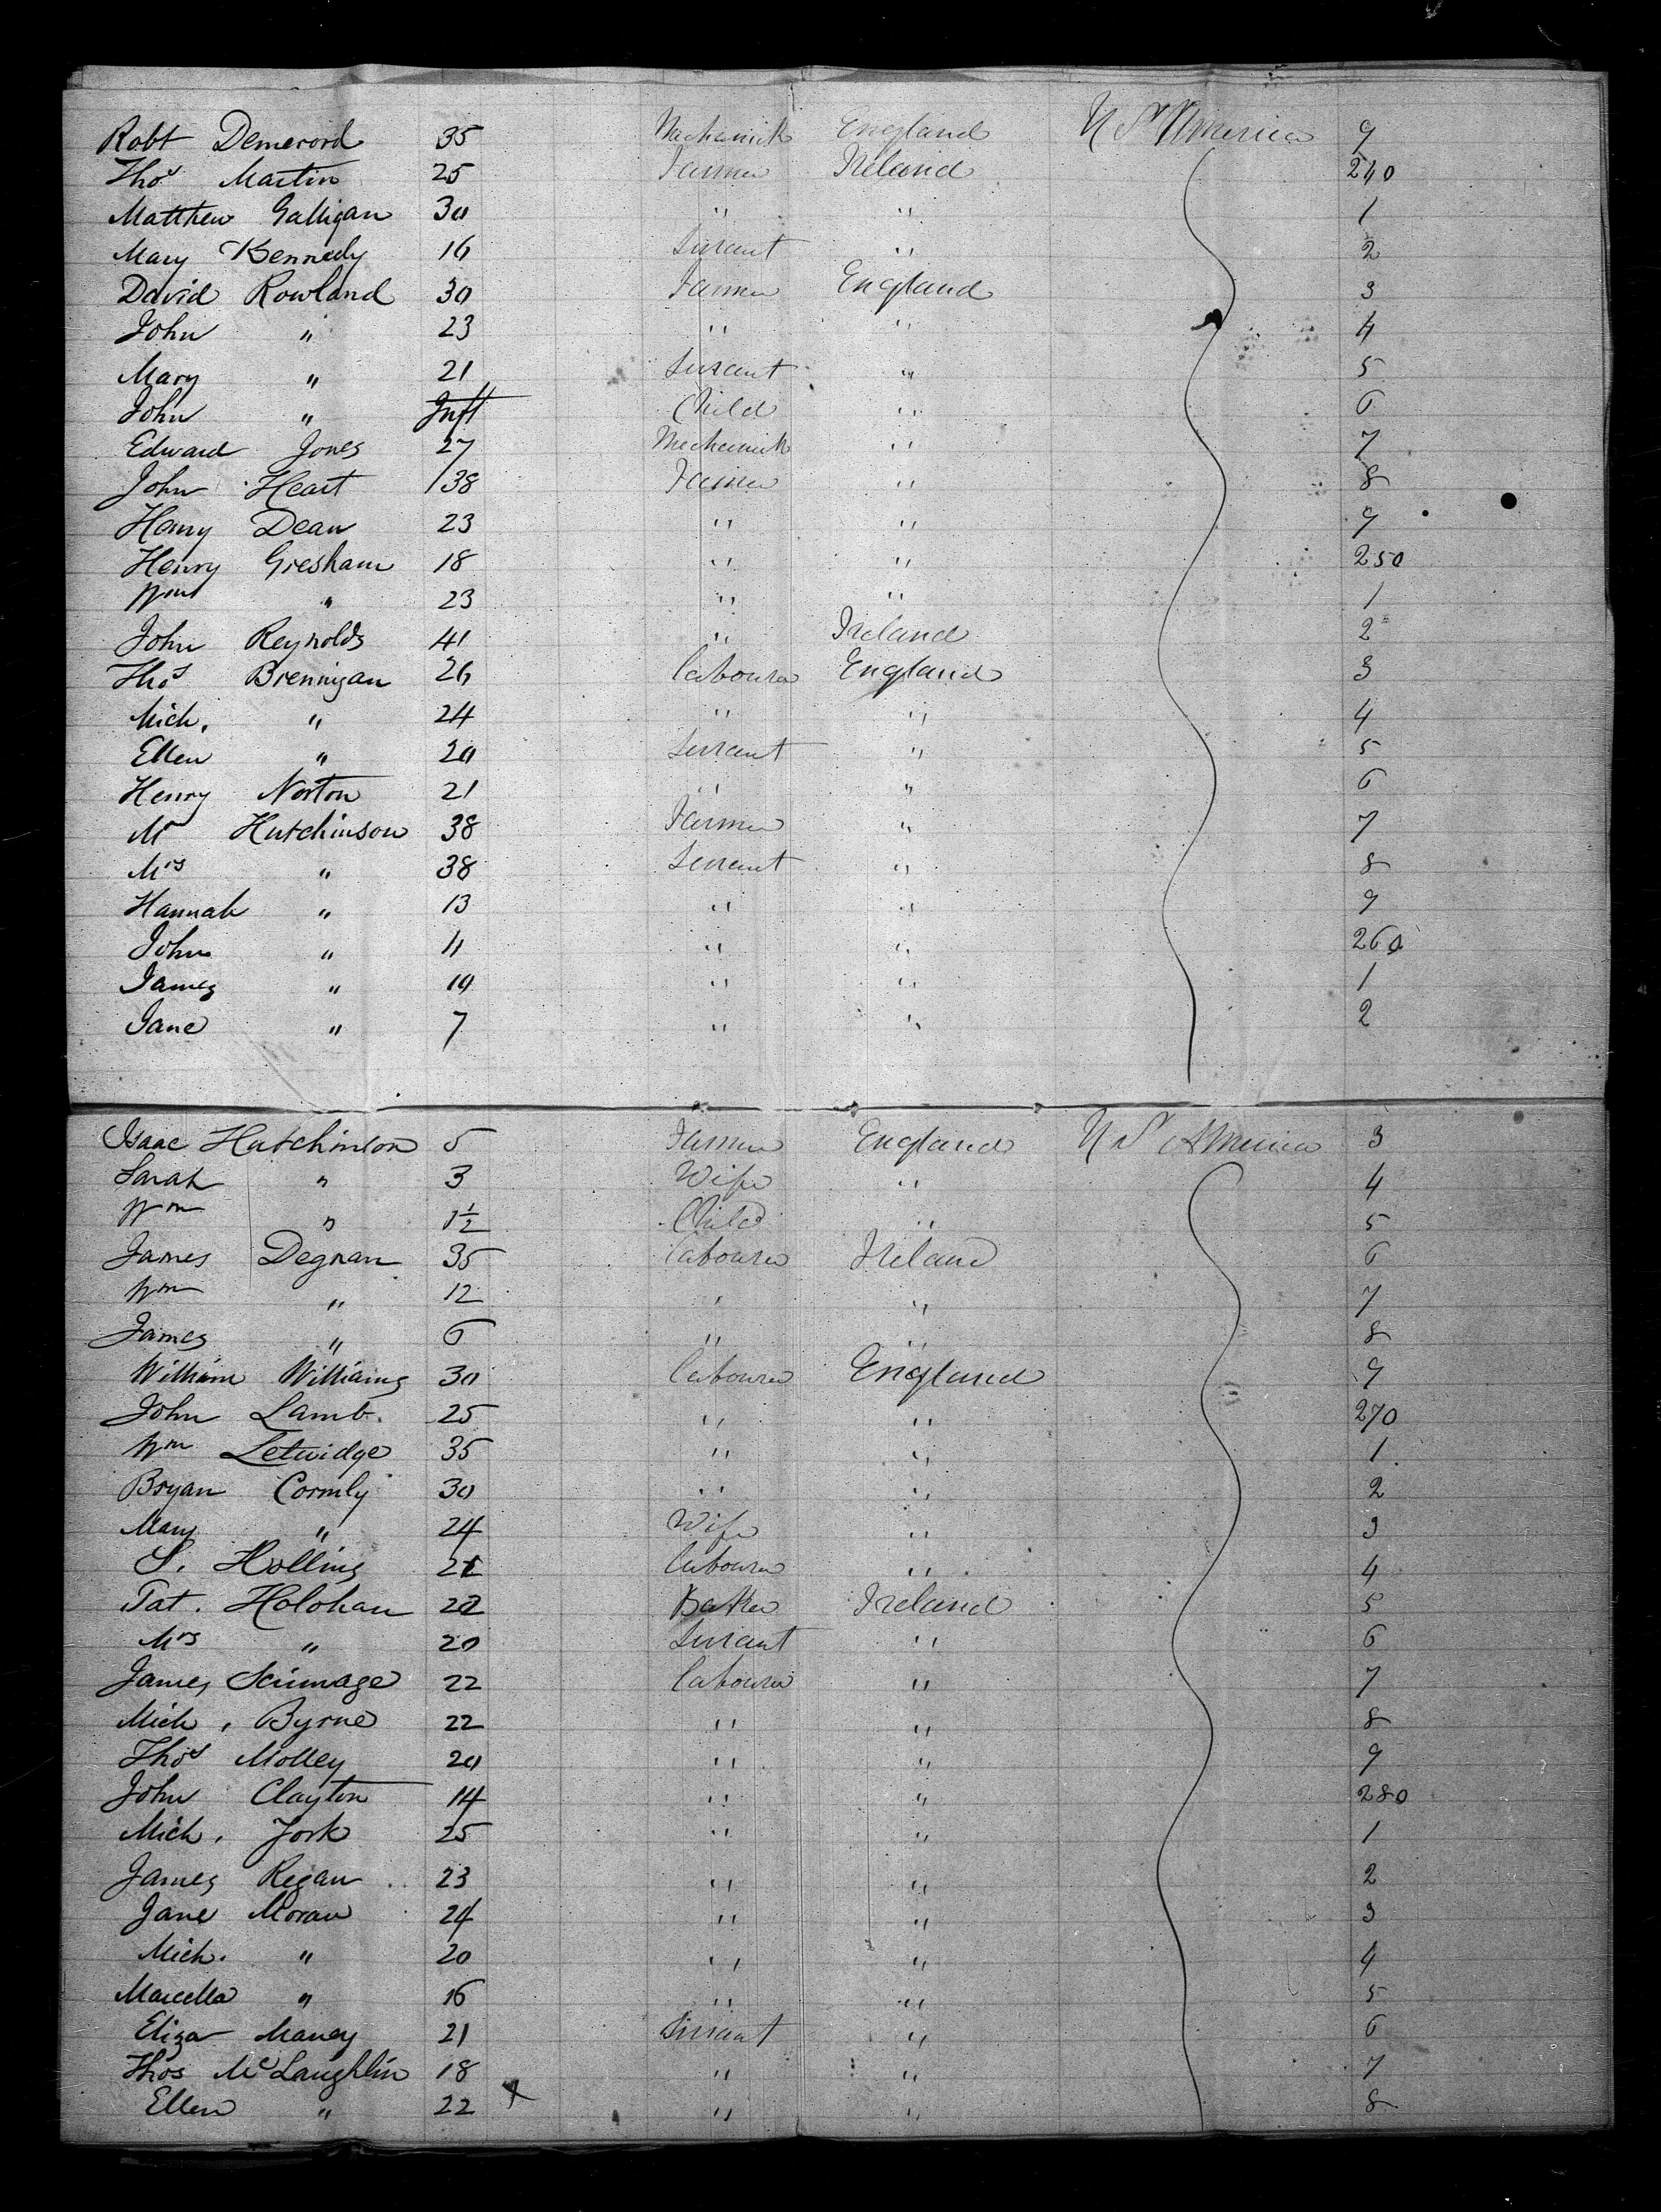 Robt Demerord 35 Mechanick England U S America 9
Thos Martin 25 Farmer Ireland 240
Matthew Galligan 30 " " 1
Mary Kennedy 16 Servant " 2
David Rowland 30 Farmer England 3
John " 23 " " 4
Mary " 21 Servant " 5
John " Inft Child " 6
Edward Jones 27 Mechanick " 7
John Heart 38 Farmer " 8
Henry Dean 23 " " 9
Henry Gresham 18 " " 250
Wm " 23 " " 1
John Reynolds 41 " Ireland 2
Thos Brennigan 26 Labourer England 3
Mich. " 24 " " 4
Ellen " 20 Servant " 5
Henry Norton 21 " " 6
Mr Hutchinson 38 Farmer " 7
Mrs " 38 Servant " 8
Hannah " 13 " " 9
John " 11 " " 260
James " 10 " " 1
Jane " 7 " " 2
Isaac Hutchinson 5 Farmer England U S America 3
Sarah " 3 Wife " 4
Wm " 1½ Child " 5
James Degnan 35 Labourer Ireland 6
Wm " 12 " " 7
James " 6 " " 8
William Williams 30 Labourer England 9
John Lamb. 25 " " 270
Wm Letwidge 35 " " 1
Bryan Cormly 30 " " 2
Mary " 24 Wife " 3
S. Hollins Labourer " 4
Pat. Holohan 22 Baker Ireland 5
Mrs " 20 Servant " 6
James Scrimage 22 Labourer " 7
Mich. Byrne 22 " " 8
Thos Molley 20 " " 9
John Clayton 14 " " 280
Mich. York 25 " " 1
James Regan 23 " " 2
Jane Moran 24 " " 3
Mich. " 20 " " 4
Marcella " 16 " " 5
Eliza Maney 21 Servant " 6
Thos McLaughlin 18 " " 7
Ellen " 22 x " " 8